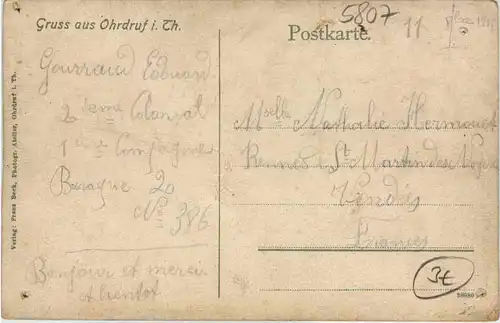 Gruss aus Ohrdruf i. Th.
5807
11
Postkarte.
Gourraud Edouard
2 ieme Colonial
1 ere Compagnie
Baraque 20
N° 386
Bonjour et merci
et bientot
Mselle Nathalie Hermouet
St Martin des
Vendée
3€
Verlag: Franz Beck, Photogr. Atelier, Ohrdruf i. Th.